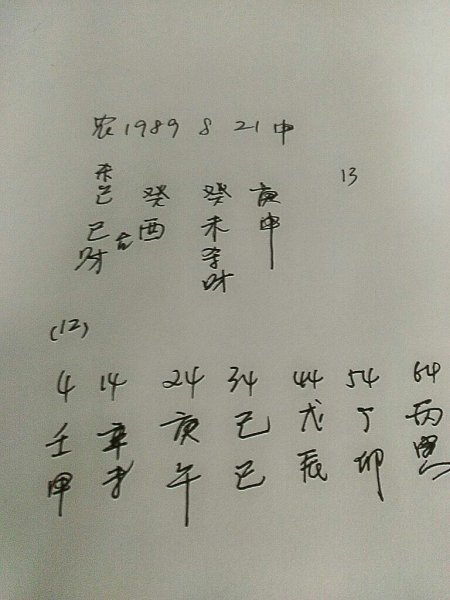 农1989 8 21 申
杀 13
己 癸 癸 庚
巳 合 酉 未 申
财 杀
财
(12)
4 14 24 34 44 54 64
壬 辛 庚 己 戊 丁 丙
申 午 巳 辰 卯